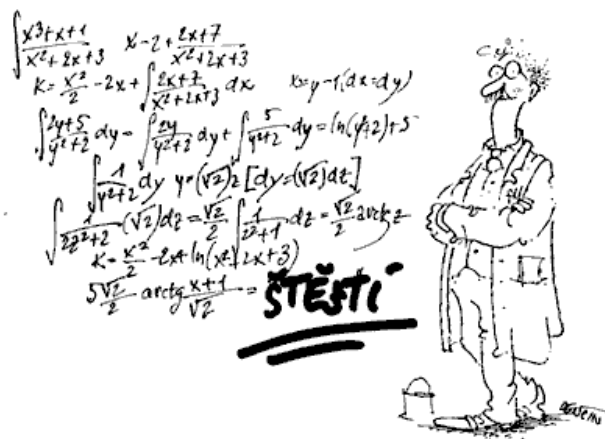 ∫ x³+x+1 / x²+2x+3   x-2+ 2x+7 / x²+2x+3
K= x²/2 -2x+ ∫ 2x+7 / x²+2x+3 dx   x=y-1, (dx=dy)
∫ 2y+5 / y²+2 dy= ∫ 2y / y²+2 dy+ ∫ 5 / y²+2 dy=ln(y²+2)+5
∫ 1 / y²+2 dy y=(√2)z [dy=(√2)dz]
∫ 1 / 2z²+2 (√2)dz= √2/2 ∫ 1 / z²+1 dz= √2/2 arctg z
K= x²/2 -2x+ ln(x² 2x+3)
5√2/2 arctg x+1 / √2 = ŠTĚSTÍ